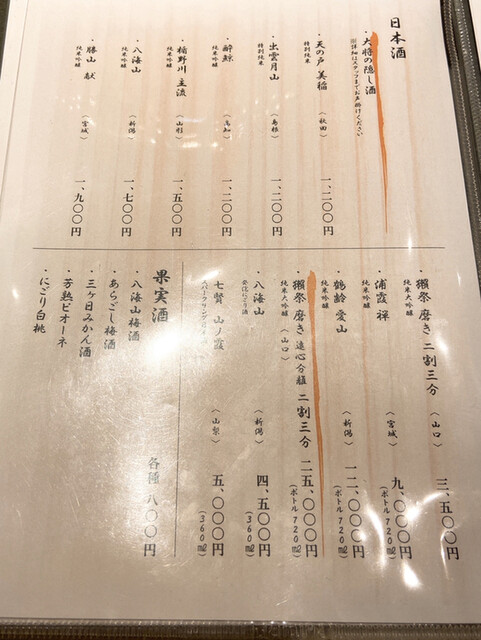 日本酒
・大将の隠し酒
※詳細はスタッフまでお声掛けください
・天の戸 美稲
特別純米
〈秋田〉
一、二〇〇円
・出雲月山
特別純米
〈島根〉
一、二〇〇円
・酔鯨
純米吟醸
〈高知〉
一、二〇〇円
・楯野川 主流
純米吟醸
〈山形〉
一、五〇〇円
・八海山
純米吟醸
〈新潟〉
一、七〇〇円
・勝山 献
純米吟醸
〈宮城〉
一、九〇〇円
・獺祭 磨き 二割三分
純米大吟醸
〈山口〉
三、五〇〇円
・浦霞 禅
純米吟醸
〈宮城〉
九、〇〇〇円
(ボトル720㎖)
・鶴齢 愛山
純米吟醸
〈新潟〉
一二、〇〇〇円
(ボトル720㎖)
・獺祭 磨き 遠心分離 二割三分
純米大吟醸
〈山口〉
二五、〇〇〇円
(ボトル720㎖)
・八海山
発泡にごり酒
〈新潟〉
四、五〇〇円
(360㎖)
・七賢 山ノ霞
スパークリング日本酒
〈山梨〉
五、〇〇〇円
(360㎖)
果実酒
・八海山梅酒
・あらごし梅酒
・三ヶ日みかん酒
・芳熟ピオーネ
・にごり白桃
各種 八〇〇円